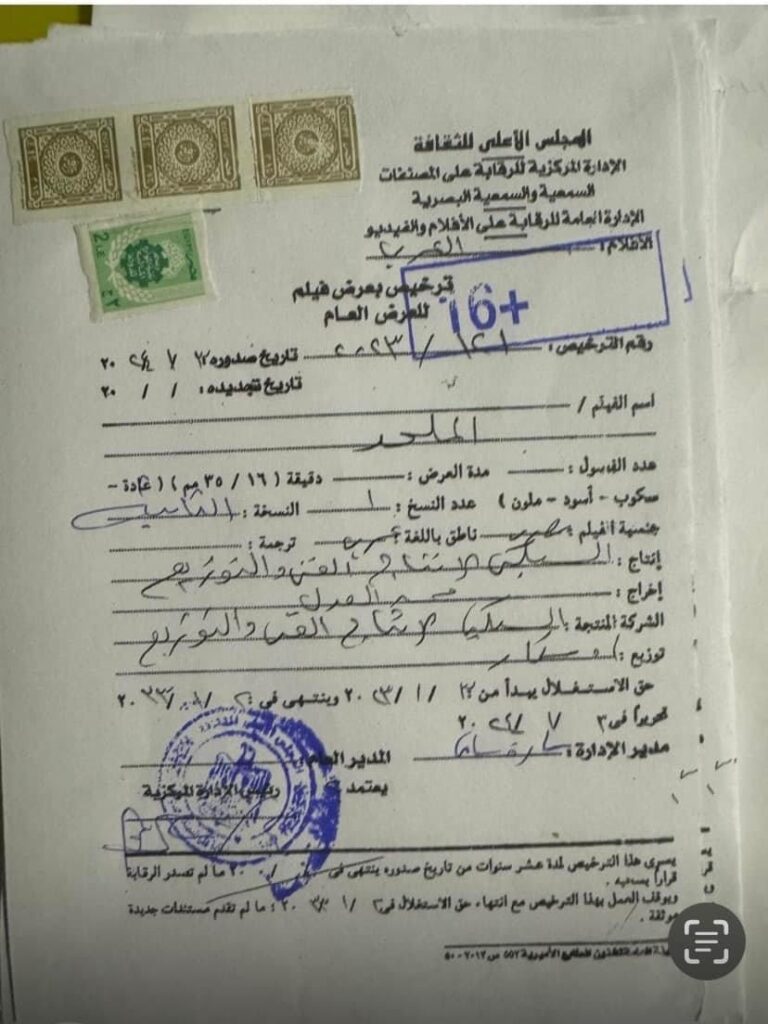 المجلس الأعلى للثقافة
الإدارة المركزية للرقابة على المصنفات
السمعية والسمعية البصرية
الإدارة العامة للرقابة على الأفلام والفيديو
الأفلام:
16+
ترخيص بعرض فيلم
للعرض العام
رقم الترخيص: ١٢١ / ٢٠٢٣ تاريخ صدوره ٣ / ٧ / ٢٠٢٤
تاريخ تجديده: / / ٢٠
اسم الفيلم /
الملحد
عدد الفصول: مدة العرض: دقيقة ( ١٦ / ٣٥ مم ) ( عادة -
سكوب - أسود - ملون ) عدد النسخ: ١ النسخة:
جنسية الفيلم: مصري ناطق باللغة: عربى ترجمة:
إنتاج: السبكى لإنتاج الفنى والتوزيع
إخراج: محمد العدل
الشركة المنتجة: السبكى لإنتاج الفنى والتوزيع
توزيع:
حق الاستغلال يبدأ من ٢٠ وينتهى فى: ٢٠
تحريراً فى ٣ / ٧ / ٢٠٢٤
مدير الإدارة: المدير العام:
يعتمد
رئيس الإدارة المركزية
يسرى هذا الترخيص لمدة عشر سنوات من تاريخ صدوره ينتهى فى / / ٢٠ ما لم تصدر الرقابة
قراراً بسحبه.
ويوقف العمل بهذا الترخيص مع انتهاء حق الاستغلال فى ٢٠ ما لم تقدم مستندات جديدة
موثقة.
الأميرية ٥٥٢ س ٢٠١٢ - ٥٠